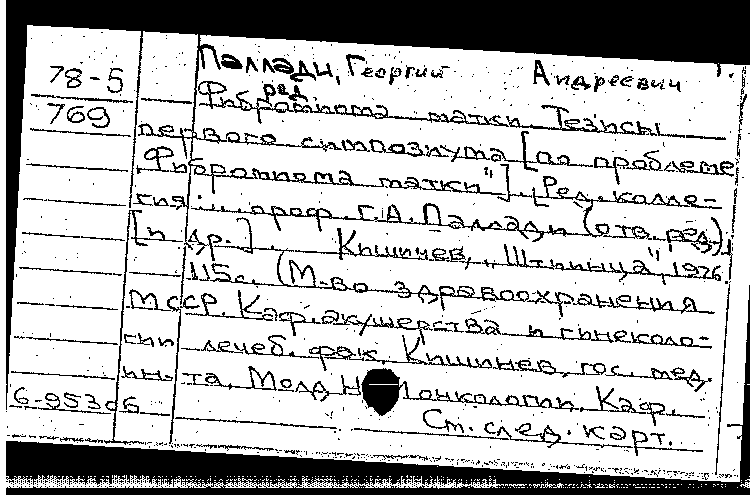 Паллади, Георгий Андреевич
78-5
769
ред.
Фибромиома матки. Тезисы
первого симпозиума [по проблеме
"Фибромиома матки"]. [Ред. колле-
гия: ... проф. Г.А. Паллади (отв. ред.)
[и др.]. Кишинев, "Штиинца", 1976.
115с. (М-во здравоохранения
МССР. Каф. акушерства и гинеколо-
гии лечеб. фак. Кишинев. гос. мед.
ин-та. Молд. онкологии. Каф.
6-95306
См. след. карт.